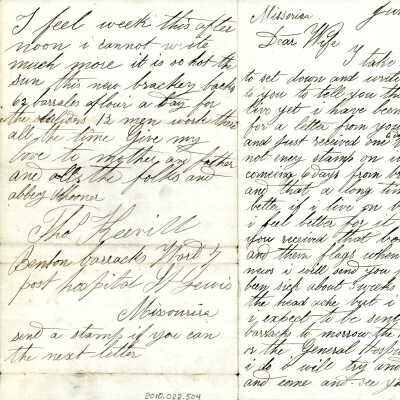 I feel week this after
noon i cannot write
much more it is so hot the
sun this new brackery backs
62 barrales aflour a day for
the 12 men work there
all the time Give my
love to mother an father
ane all the folks and
abbey Spooner
Thos
Benton barracks Ward 4
post hospital St Lewis
Missouria
send a stamp if you can
the next letter
2010.022.504
Missouria
Dear Wife
I take
to set down and write
to you to tell you th
live yet i have been
for a letter from you
and just received one
not eney stamp on i
comeing 6 days from
and that a long tim
better if i live on
i feel better for it
you received that bo
and them flags when
news i will send you
been sick about 3 weeks
the head ache but i
i expect to be sen
barracks to morrow the
or the General hospi
i do i will try an
and come and see yo